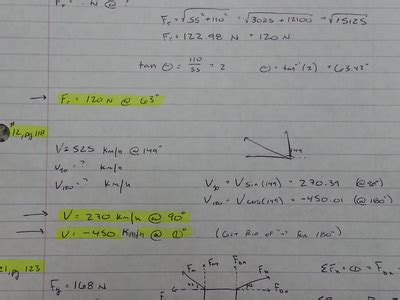 Fr = N @
Fr = √55² + 110² = √3025 + 12100 = √15125
Fr = 122.98 N = 120 N
tan Θ = 110/55 = 2 Θ = tan⁻¹(2) = 63.43°
→ Fr = 120 N @ 63°
12, pg 118
V = 525 km/h @ 149°
V90 = ? km/h
V180 = ? km/h
149
V90 = V sin(149) = 270.39 (@ 90°)
V180 = V cos(149) = -450.01 (@ 180°)
→ V = 270 km/h @ 90°
→ V = -450 km/h @ 0°
(Get Rid of "-" for 180°)
21, pg 123
Fg = 168 N
ΣFx = 0 =